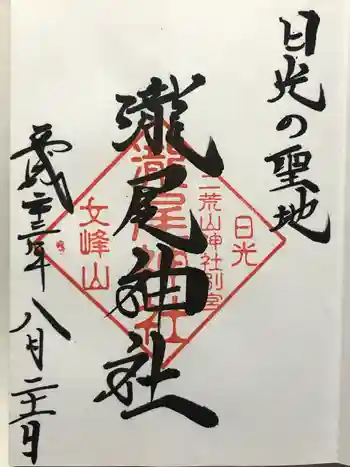 日光の聖地
瀧尾神社
日光
二荒山神社別宮
瀧尾神社
女峰山
平成二十三年
八月二十二日